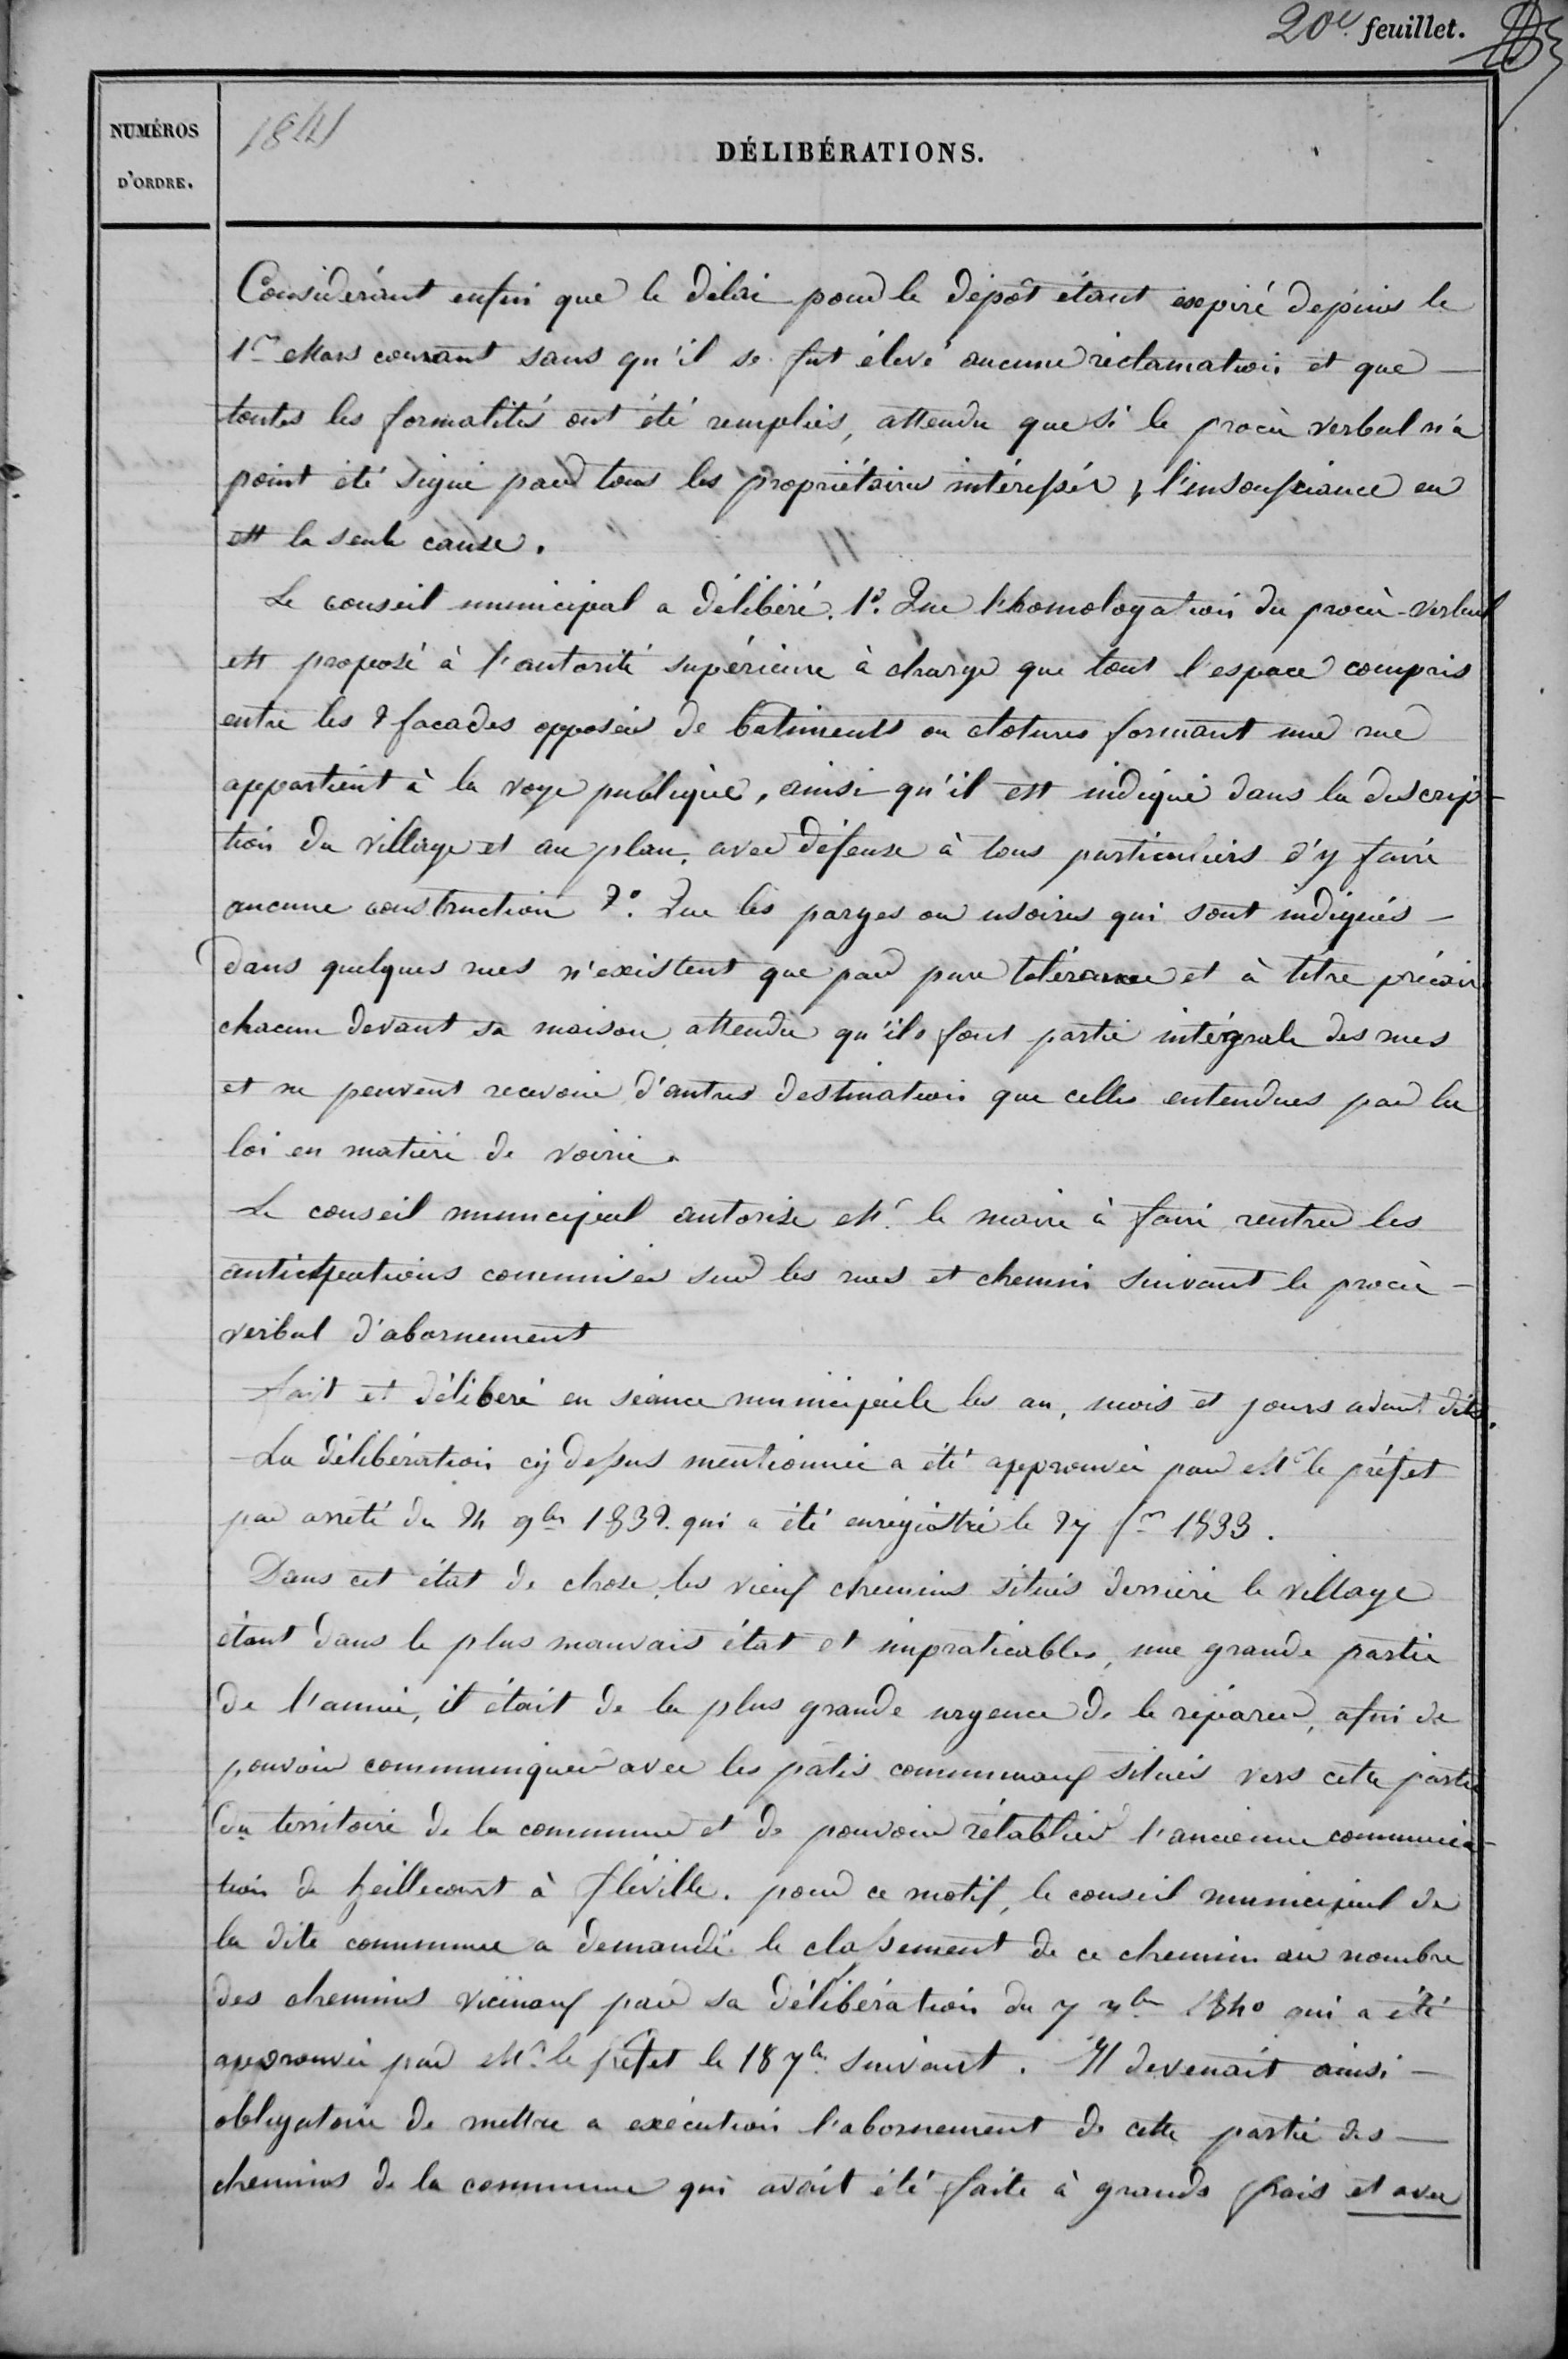 20e. feuillet.
NUMÉROS
D'ORDRE.
1841
DÉLIBÉRATIONS.
Considérant enfin que le délai pour le dépôt étant expiré depuis le
1er Mars courant sans qu'il se fut élevé aucune réclamation et que —
toutes les formalités ont été remplies, attendu que si le procès verbal n'a
point été signé par tous les propriétaires intéressés, l'insouciance en
est la seule cause.
Le conseil municipal a délibéré. 1º. Que l'homologation du procès-verbal
est proposé à l'autorité supérieure à charge que tout l'espace compris
entre les 2 facades opposées de batiments ou clotures formant une rue
appartient à la voye publique, ainsi qu'il est indiqué dans la descrip-
tion du village et au plan, avec défense à tous particuliers d'y faire
aucune construction 2º. Que les parges ou usoires qui sont indiqués —
dans quelques rues n'existent que par pure tolérance et à titre précaire
chacun devant sa maison, attendu qu'ils font partie intégrale des rues
et ne peuvent recevoir d'autres destination que celles entendues par la
loi en matière de voirie.
Le conseil municipal autorise Mr. le maire à faire rentrer les
anticipations commises sur les rues et chemin suivant le procès-
verbal d'abornement
fait et délibéré en séance municipale les an, mois et jours avant dits.
La délibération cy dessus mentionnée a été approuvée par Mr le préfet
par arrêté du 24 9bre 1832. qui a été enrégistré le 27 1833.
Dans cet état de chose, les vieux chemins situés derrière le village
étant dans le plus mauvais état et impraticables, une grande partie
de l'année, il était de la plus grande urgence de le réparer, afin de
pouvoir communiquer avec les pâtis communaux situés vers cette partie
du territoire de la commune et de pouvoir rétablir l'ancienne communica-
tion de heillecourt à fléville. pour ce motif, le conseil municipal de
la dite commune a demandé le classement de ce chemin au nombre
des chemins vicinaux par sa délibération du 7 7bre 1840 qui a été
approuvée par Mr. le préfet le 18 7bre. suivant. Il devenait ainsi —
obligatoire de mettre a exécution l'abornement de cette partie des —
chemins de la commune qui avait été faite à grands frais et avec